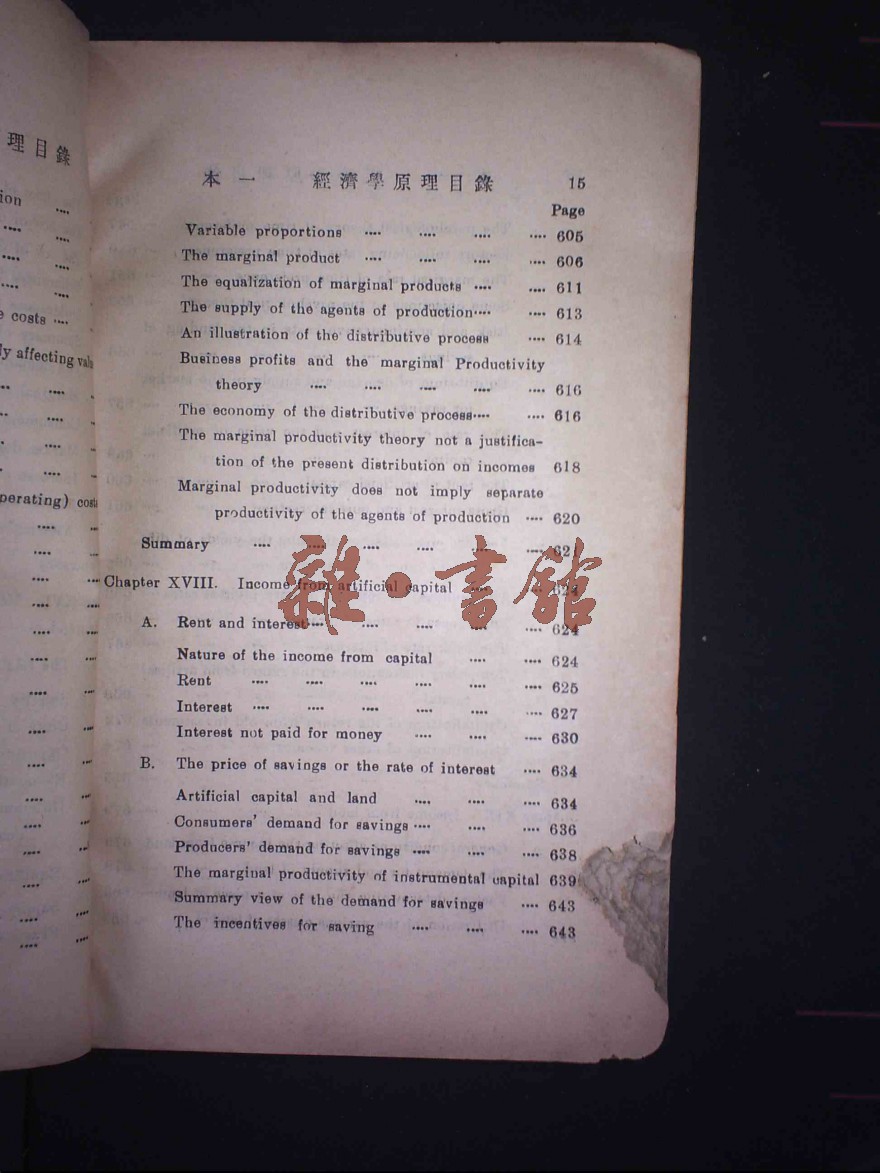 理目錄
ion ....
e costs ....
ly affecting valu
perating) costs
本一 經濟學原理目錄 15
Page
Variable proportions .... .... .... .... 605
The marginal product .... .... .... .... 606
The equalization of marginal products .... .... 611
The supply of the agents of production.... .... 613
An illustration of the distributive process .... 614
Business profits and the marginal Productivity
theory .... .... .... .... .... 616
The economy of the distributive process.... .... 616
The marginal productivity theory not a justifica-
tion of the present distribution on incomes 618
Marginal productivity does not imply separate
productivity of the agents of production .... 620
Summary .... .... .... .... .... .... 621
Chapter XVIII. Income from artificial capital .... .... 624
A. Rent and interest.... .... .... .... .... 624
Nature of the income from capital .... .... 624
Rent .... .... .... .... .... .... 625
Interest .... .... .... .... .... .... 627
Interest not paid for money .... .... .... 630
B. The price of savings or the rate of interest .... 634
Artificial capital and land .... .... .... 634
Consumers' demand for savings .... .... .... 636
Producers' demand for savings .... .... .... 638
The marginal productivity of instrumental capital 639
Summary view of the demand for savings .... 643
The incentives for saving .... .... .... 643
雜·書館